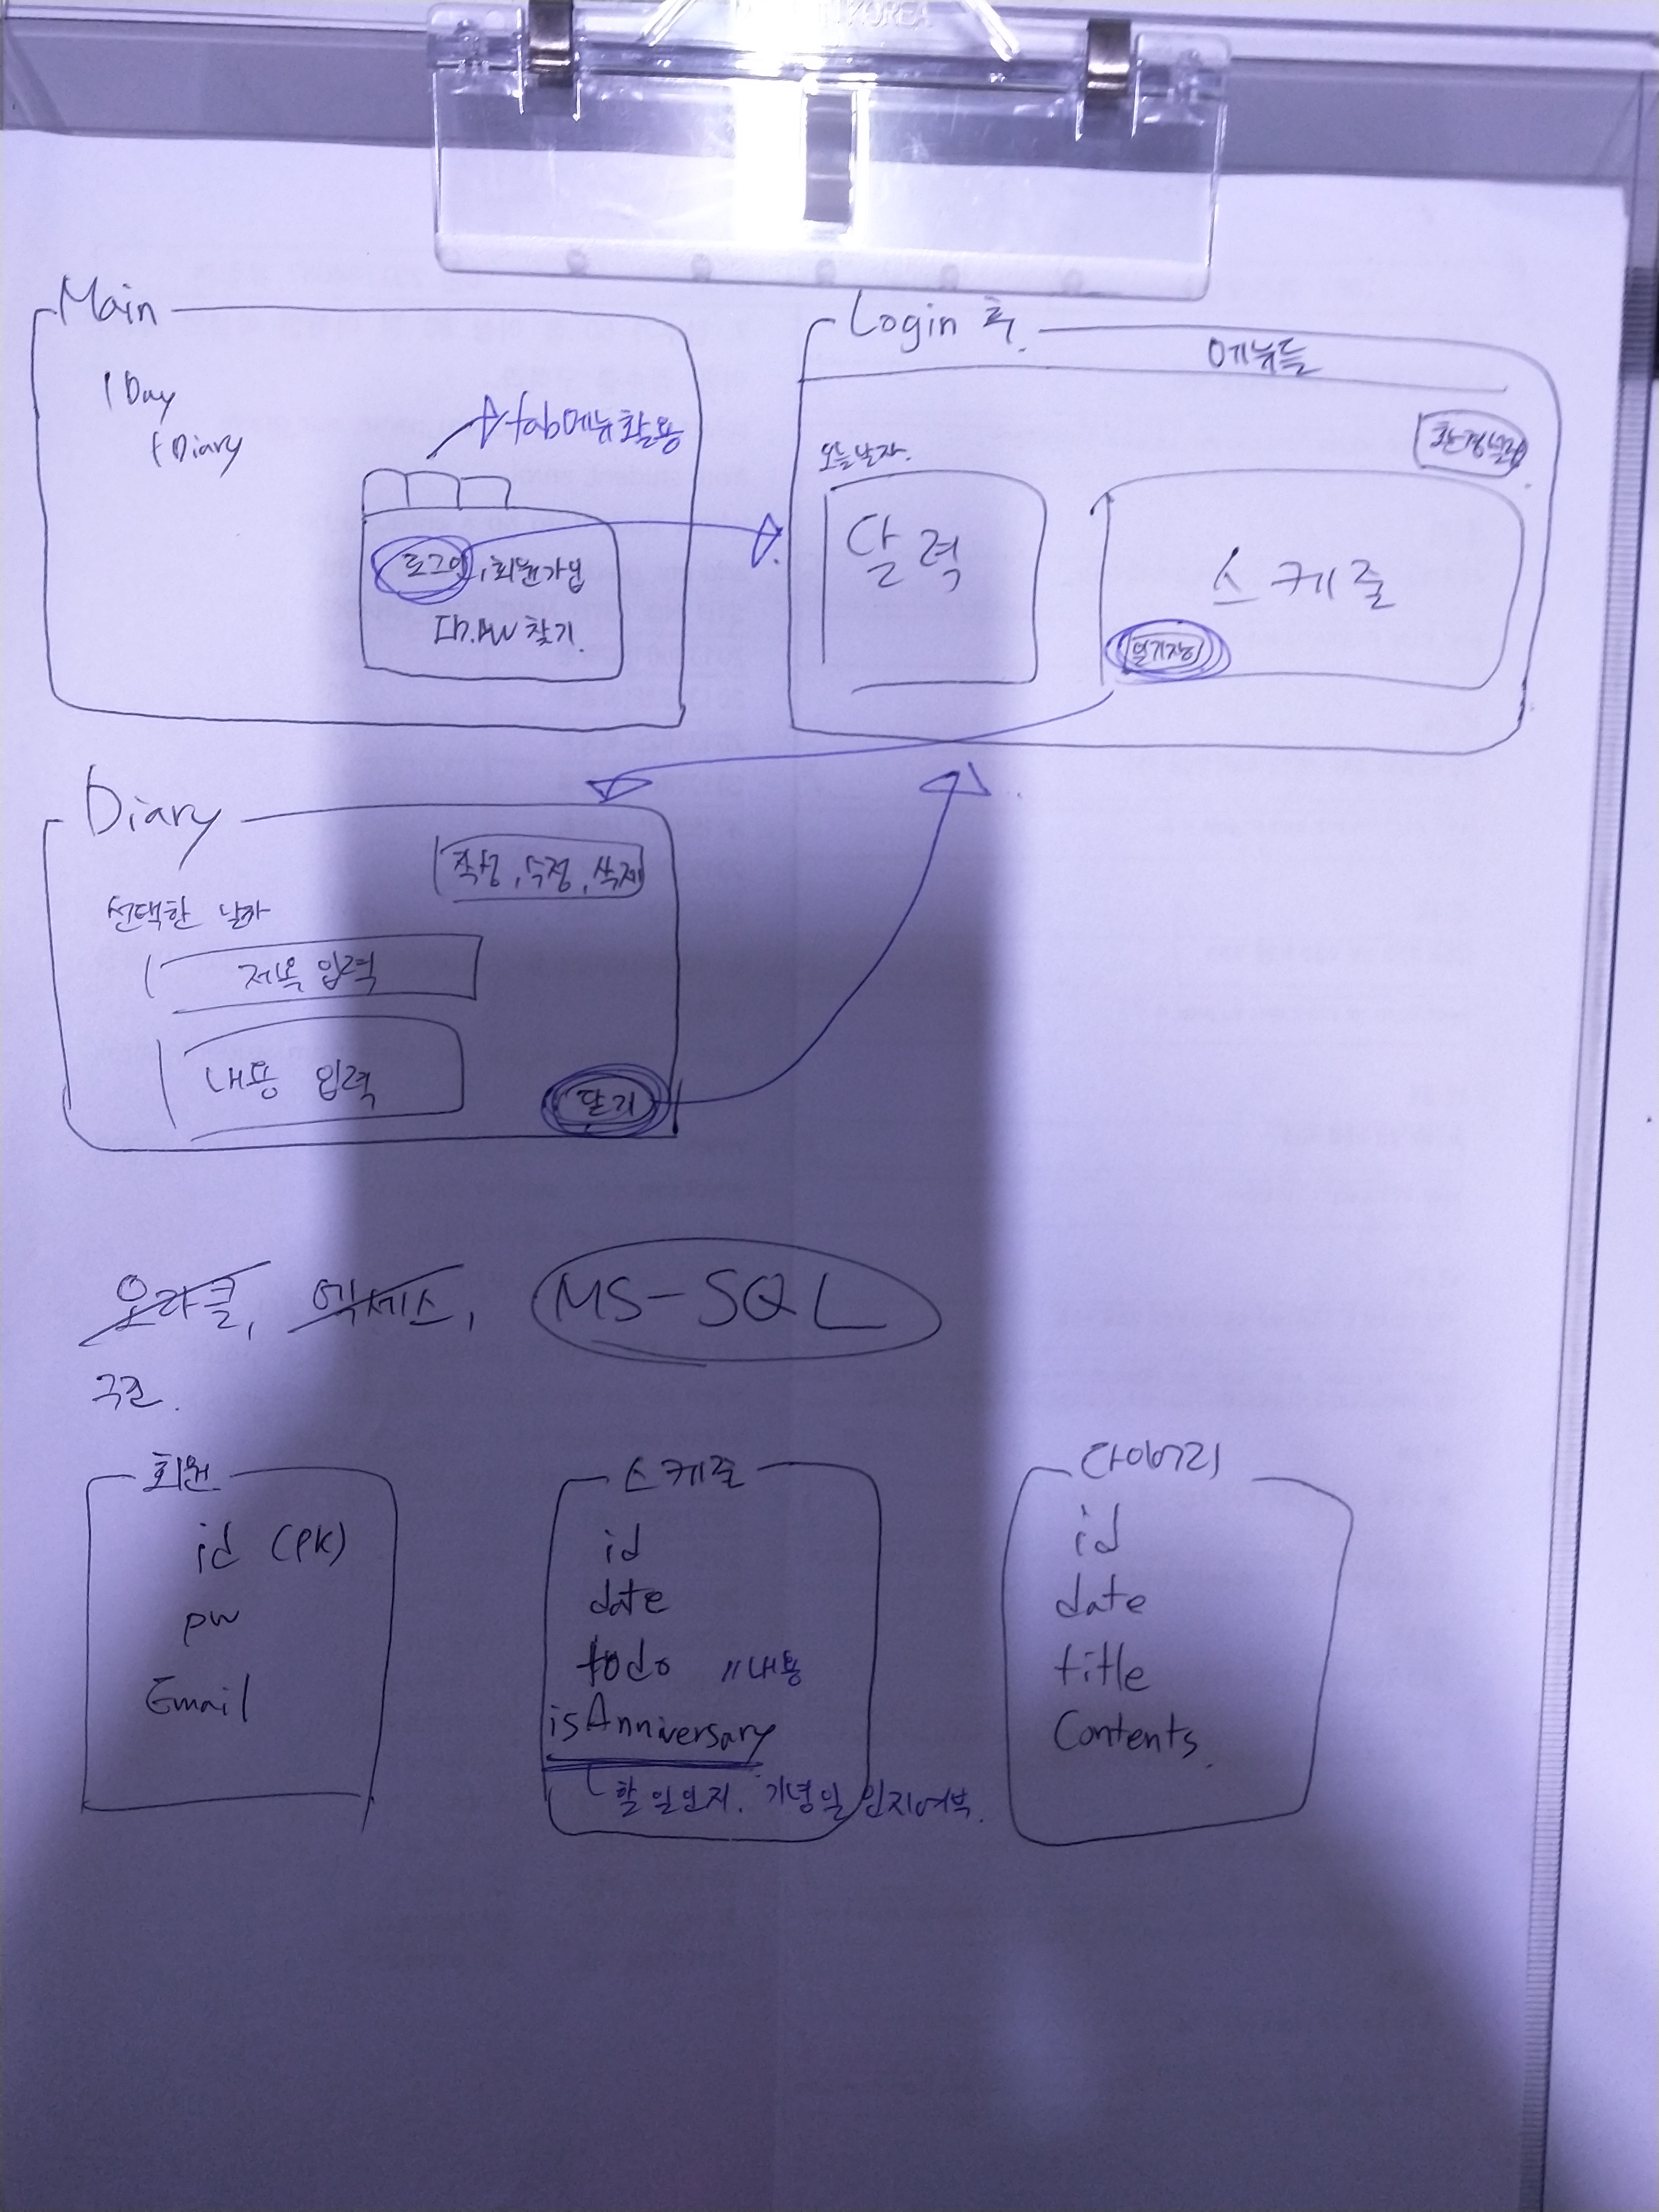 KOREA
Main
1 Day
1 Diary
tab메뉴활용
로그인, 회원가입
ID.PW 찾기.
Login 후.
메뉴들
환경설정
오늘날자.
달력
스케쥴
일기장
Diary
작성, 수정, 삭제
선택한 날자
제목 입력
내용 입력
닫기
오라클, 엑세스, MS-SQL
구조.
회원
id (PK)
pw
Email
스케쥴
id
date
todo //내용
isAnniversary
할일인지. 기념일인지여부.
다이어리
id
date
title
Contents.